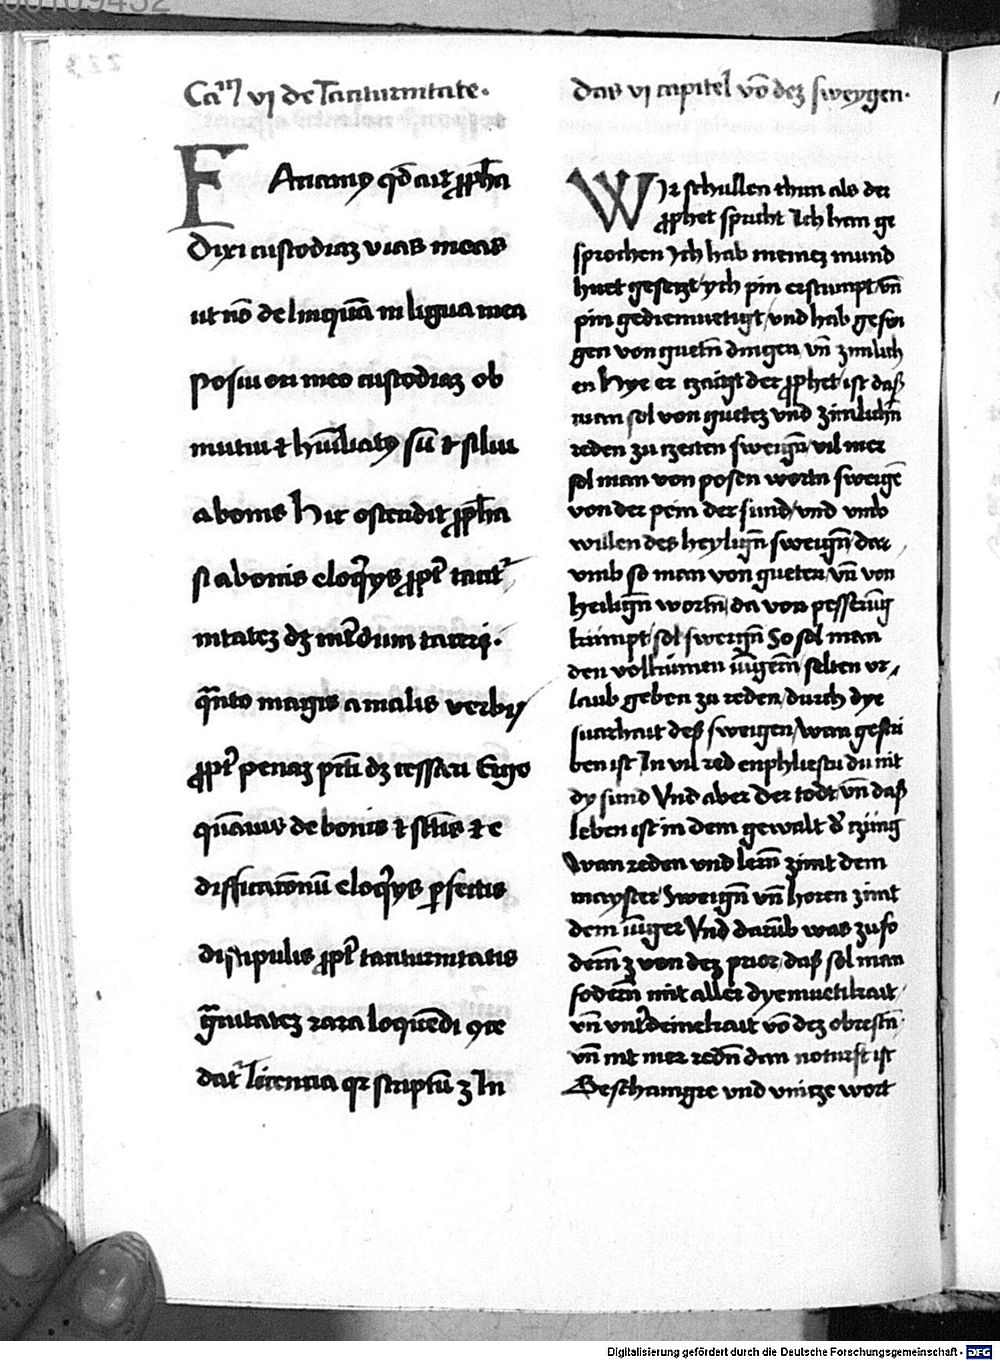 Ca᷒m vj de Taciturnitate.
Faciamꝯ qd̄ ait ꝓph̄a
Dixi custodiaꝫ vias meas
ut nō delinquā in ligua mea
posui ori meo custodiaꝫ ob
mutui ⁊ hūiliatꝯ sū ⁊ silui
a bonis hic ostendit ꝓph̄a
si a bonis eloq̄ijs ꝓpt̄ tacit᷒
nitateꝫ dꝫ int̄dum taceri.
q̄nto magis a malis verbis
ꝓpt̄ penaꝫ pctī dꝫ cessari Ergo
quāuis de bonis ⁊ sctīs ⁊ e
difficatōnū eloq̄ijs ꝑfectis
discipulis ꝓpt̄ taciturnitatis
gᷓuitateꝫ rara loquēdi ꝯce
dat᷒ licencia qꝛ scriptū ꝫ In
Das vj capitel vō deꝫ sweygen.
Wir schullen thun als der
ꝓphet spricht Ich han ge
sprochen ych hab meineꝫ mund
huet geseczt/ ych pin erstumpt/ vn̄
pin gediemuetigt/ vnd hab geswi
gen von guetn̄ dingen, vn̄ zimlich
en Hye er czaigt der ꝓphet/ ist daß
man sol von guteꝫ vnd zimlichn̄
reden zu czeiten sweign̄/ vil mer
sol man von posen wortn sweigē
von der pein der sund/ vnd vmb
willen des heylign̄ sweign̄/ dar
vmb so man von gueten/ vn̄ von
heilign̄ wortn̄/ da von pesserūg
kumpt/ sol sweign̄ So sol man
den volkumen iūgern̄/ selten vr
laub geben zu reden/ durch dye
swarhait deß sweigen/ wan geschri
ben ist In vil red enphliestu du nit
dy sund Vnd aber Der todt/ vn̄ daß
leben ist in dem gewalt d̄ czung
Wan reden vnd lern̄ zimt dem
mayster Sweign̄ vn̄ horen zimt
dem iūger Vnd darūb was zufo
dern̄ ꝫ von deꝫ prior/ daß sol man
fodern̄ mit aller dyemuetikait/
vn̄ vnt̄deinekait vō deꝫ obrestn̄.
vn̄ nit mer redn̄ dan noturft ist
Beschamgre vnd vnücze wort
Digitalisierung gefördert durch die Deutsche Forschungsgemeinschaft - DFG